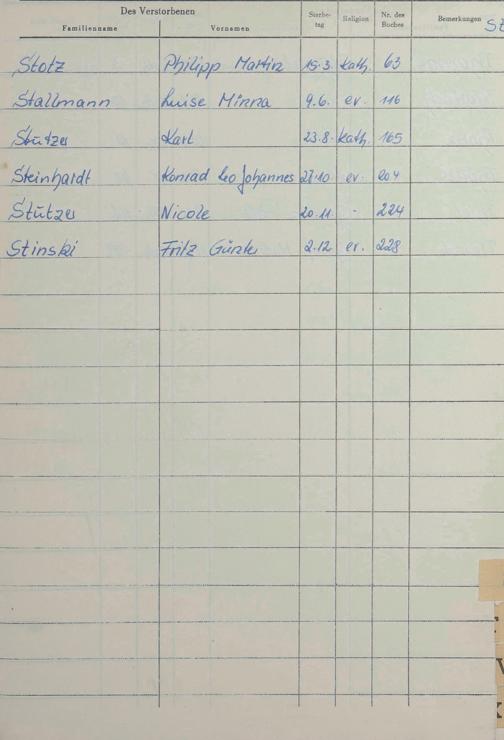 Des Verstorbenen Sterbe- Religion Nr. des Bemerkungen St
Familienname Vornamen tag Buches
Stotz Philipp Martin 15.3. kath. 63
Stallmann Luise Minna 9.6. ev. 116
Stützer Karl 23.8. kath. 165
Steinhardt Konrad Leo Johannes 27.10 ev. 204
Stützer Nicole 20.11. - 224
Stinski Fritz Günter 2.12. ev. 228